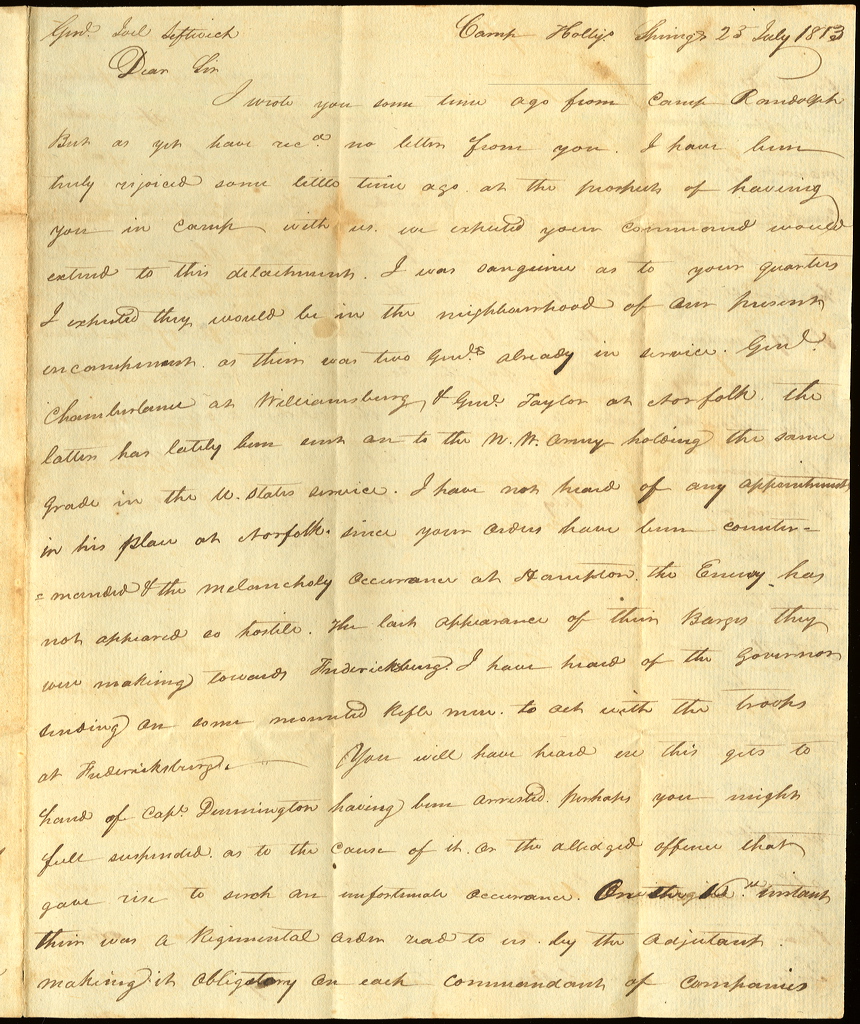 Genl. Joel Leftwich Camp Holly Springs 23 July 1813
Dear Sir
I wrote you some time ago from Camp Randolph
But as yet have recd. no letter from you. I have been
truly rejoiced some little time ago at the prospects of having
you in camp with us. we expected your command would
extend to this detachment. I was sanguine as to your quarters
I expected they would be in the neighbourhood of our present
incampment. as their was two Genls. already in service. Genl.
Chamberlane at Williamsburg, & Genl. Taylor at Norfolk. the
latter has lately been sent on to the N. W. Army holding the same
grade in the U. States service. I have not heard of any appointment
in his place at Norfolk. since your orders have been counter=
=manded & the melancholy occurrance at Hampton. the Enemy has
not appeared so hostile. The last appearance of their Barges they
were making towards Fredericksburg. I have heard of the Governor
sending on some mounted Rifle men. to act with the troops
at Fredericksburg. You will have heard ere this gets to
hand of Capt. Dunnington having been arrested. perhaps you might
full suspended. as to the cause of it. or the alledged offence that
gave rise to such an unfortunate occurrance. On the 15th. instant
their was a Regimental order read to us. by the Adjutant.
making it obligatory on each commandant of companies